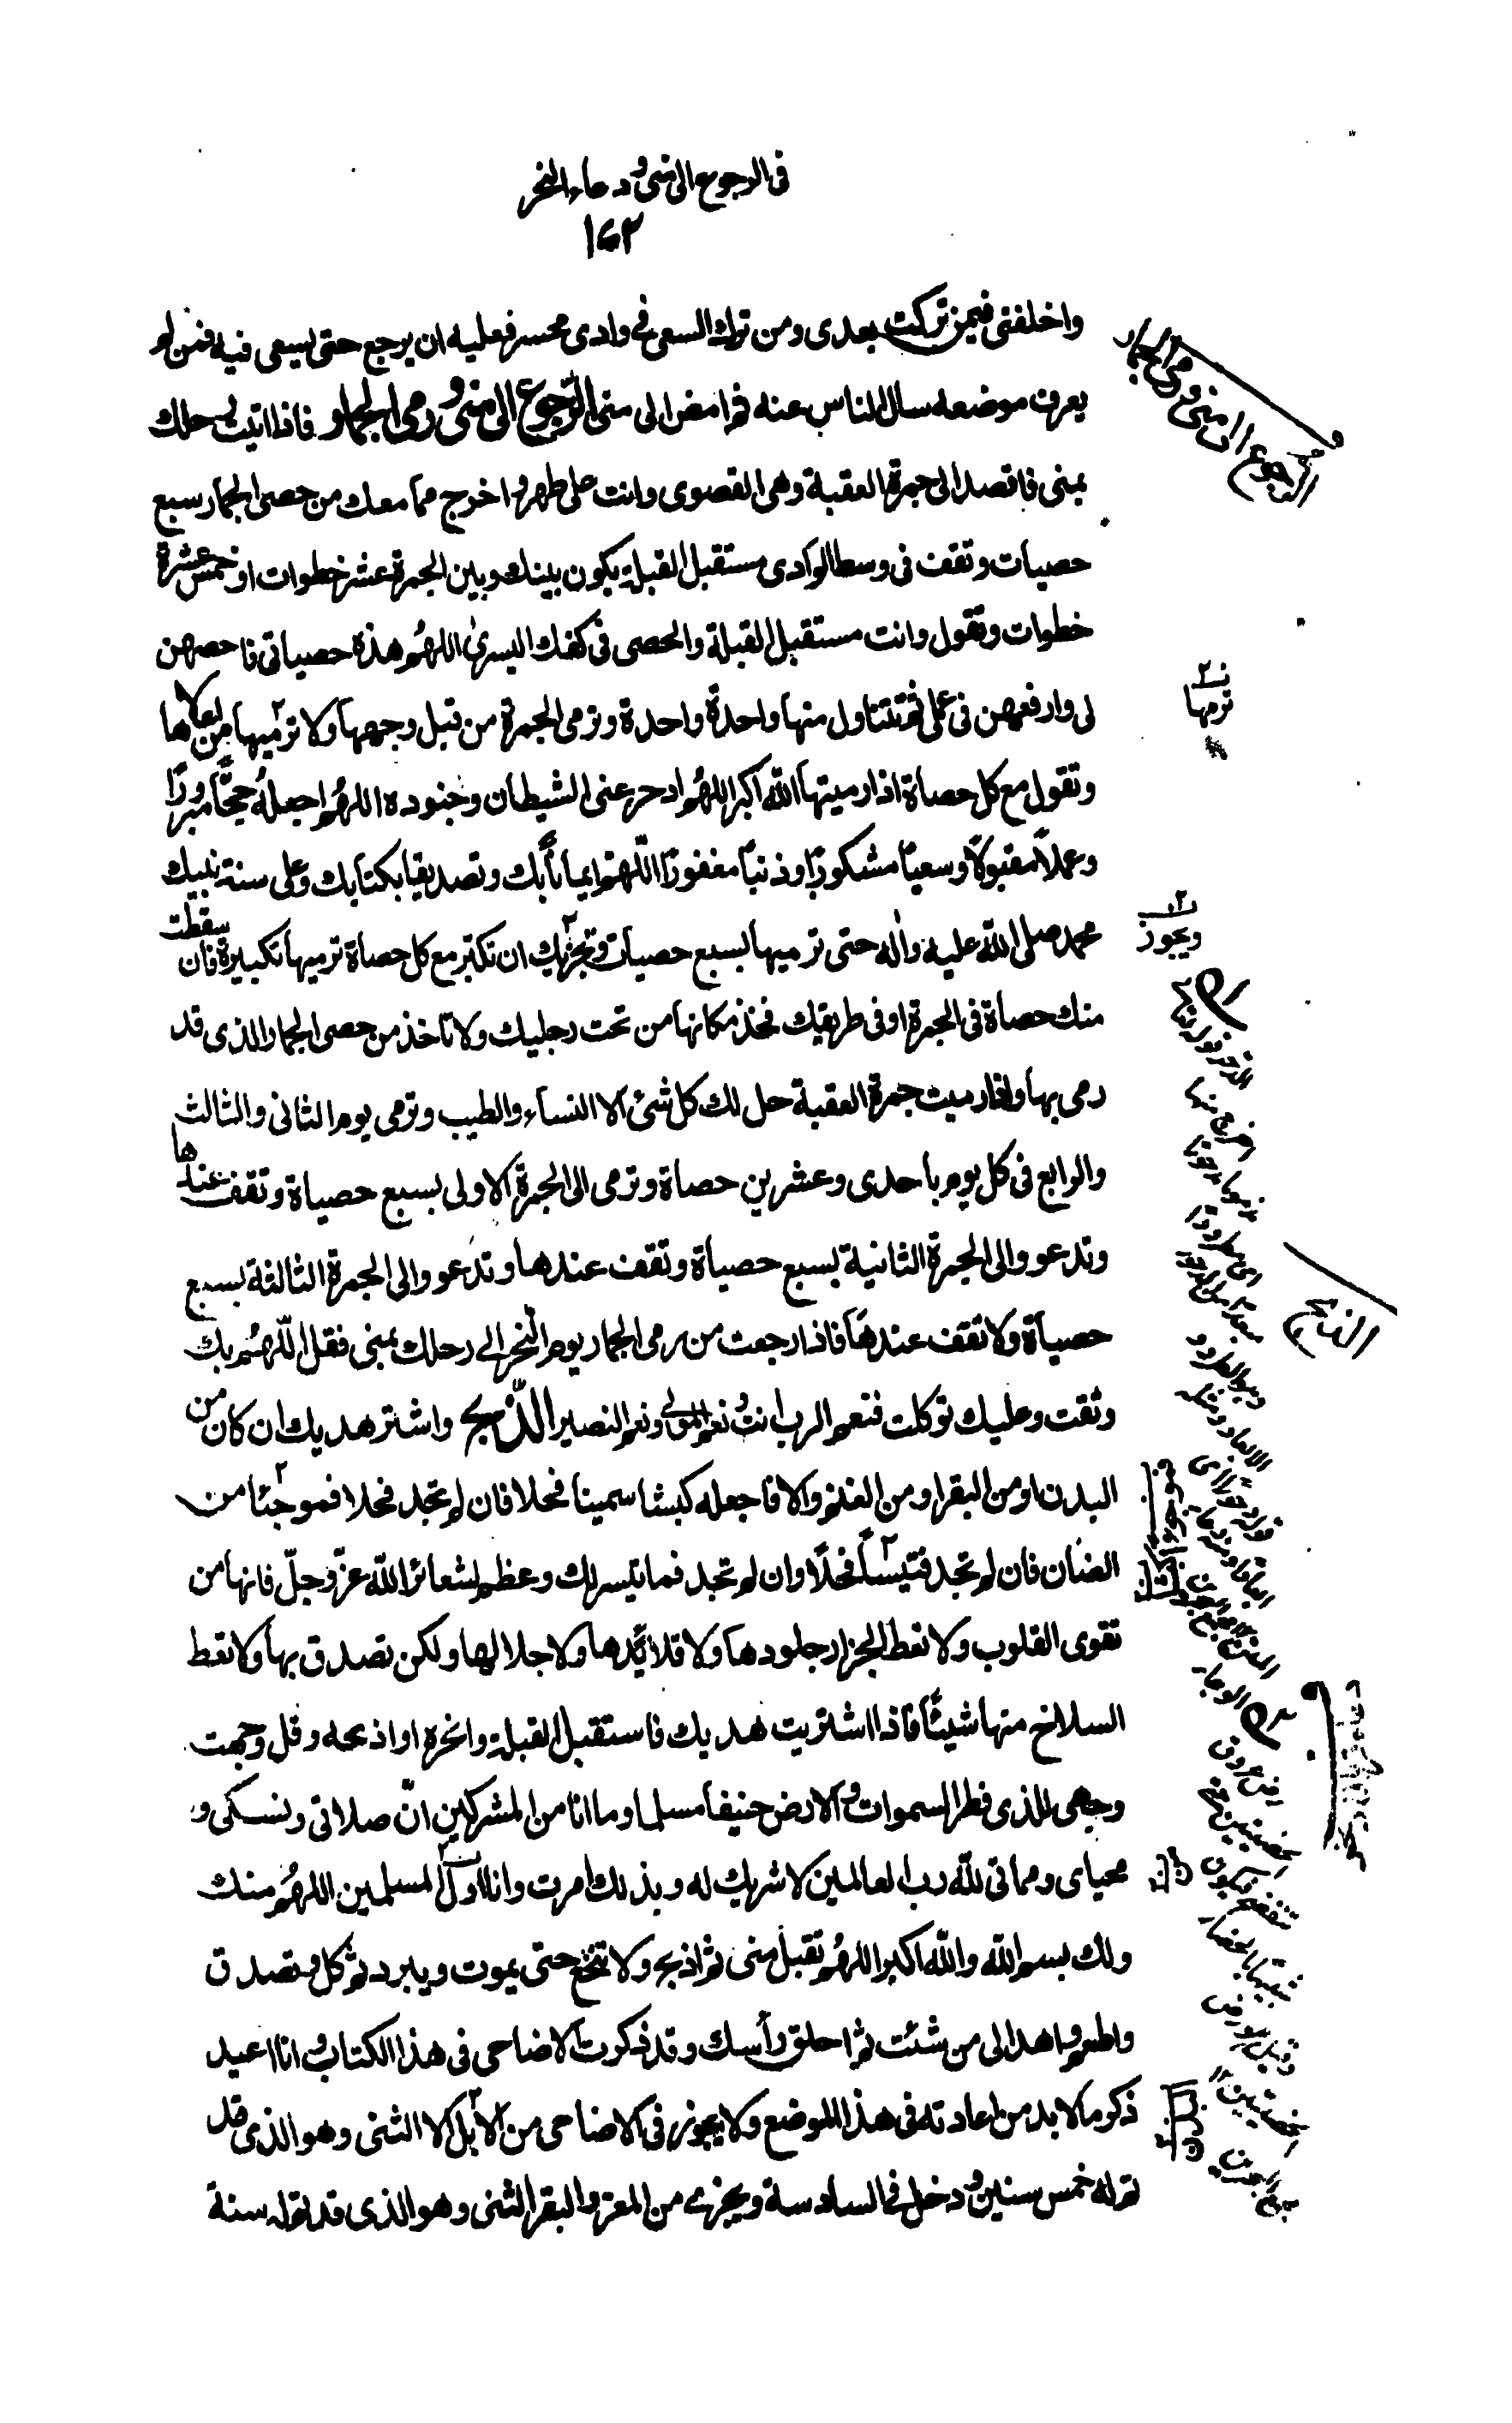 في الرجوع الى منى ودعاء النحر
١٧٢
واخلفني فيمن تركت بعدى ومن ترك السعي في وادى محسر فعليه ان يرجع حتى يسعى فيه فمن لم
يعرف موضعه سال الناس عنه ثم امض الى منى الرجوع الى منى ورمى الجمار فاذا اتيت رحلك
بمنى فاقصد الى جمرة العقبة وهى القصوى وانت على طهر واخرج مما معك من حصى الجمار سبع
حصيات وتقف فى وسط الوادى مستقبل القبلة يكون بينك وبين الجمرة عشر خطوات او خمس عشرة
خطوات وتقول وانت مستقبل القبلة والحصى فى كفك اليسرى اللهم هذه حصياتى فاحصهن
لى وارفعهن فى عملى ثم تتناول منها واحدة واحدة وترمى الجمرة من قبل وجهها ولا ترميها من اعلاها
وتقول مع كل حصاة اذا رميتها الله اكبر اللهم ادحر عنى الشيطان وجنوده اللهم اجعله حجا مبرورا
وعملا مقبولا وسعيا مشكورا وذنبا مغفورا اللهم ايمانا بك وتصديقا بكتابك وعلى سنة نبيك
محمد صلى الله عليه واله حتى ترميها بسبع حصيات وتجزيك ان تكبر مع كل حصاة ترميها تكبيرة فان سقطت
منك حصاة فى الجمرة او فى طريقك فخذ مكانها من تحت رجليك ولا تاخذ من حصى الجمار الذى قد
رمى بها واذا رميت جمرة العقبة حل لك كل شئ الا النساء والطيب وترمى يوم الثانى والثالث
والرابع فى كل يوم باحدى وعشرين حصاة وترمى الى الجمرة الاولى بسبع حصياة وتقف عندها
وتدعو والى الجمرة الثانية بسبع حصياة وتقف عندها وتدعو والى الجمرة الثالثة بسبع
حصياة ولا تقف عندها فاذا رجعت من رمى الجمار يوم النحر الى رحلك بمنى فقل اللهم بك
وثقت وعليك توكلت فنعم الرب انت ونعم المولى ونعم النصير الذبح واشتر هديك ان كان من
البدن او من البقر او من الغنم والا فاجعله كبشا سمينا فحلا فان لم تجد فحلا فموجئا من
الضان فان لم تجد فتيسا فحلا وان لم تجد فما تيسر لك وعظم شعائر الله عز وجل فانها من
تقوى القلوب ولا تعط الجزار جلودها ولا قلائدها ولا جلالها ولكن تصدق بها ولا تعط
السلاخ منها شيئا فاذا اشتريت هديك فاستقبل القبلة وانحره او اذبحه وقل وجهت
وجهى للذى فطر السموات والارض حنيفا مسلما وما انا من المشركين ان صلاتى ونسكى و
محياى ومماتى لله رب العالمين لا شريك له وبذلك امرت وانا اول المسلمين اللهم منك
ولك بسم الله والله اكبر اللهم تقبل منى ثم اذبح ولا تنخع حتى يموت ويبرد ثم كل وتصدق
واطعم واهد الى من شئت ثم احلق رأسك وقد ذكرت الاضاحى فى هذا الكتاب وانا اعيد
ذكر ما لا بد من اعادته فى هذا الموضع ولا يجوز فى الاضاحى من الابل الا الثنى وهو الذى قد
تم له خمس سنين ودخل في السادسة ويجزى من المعز والبقر الثنى وهو الذى قد تم له سنة
الرجوع الى منى ورمى الجمار
ترمها
ويجوز
الذبح